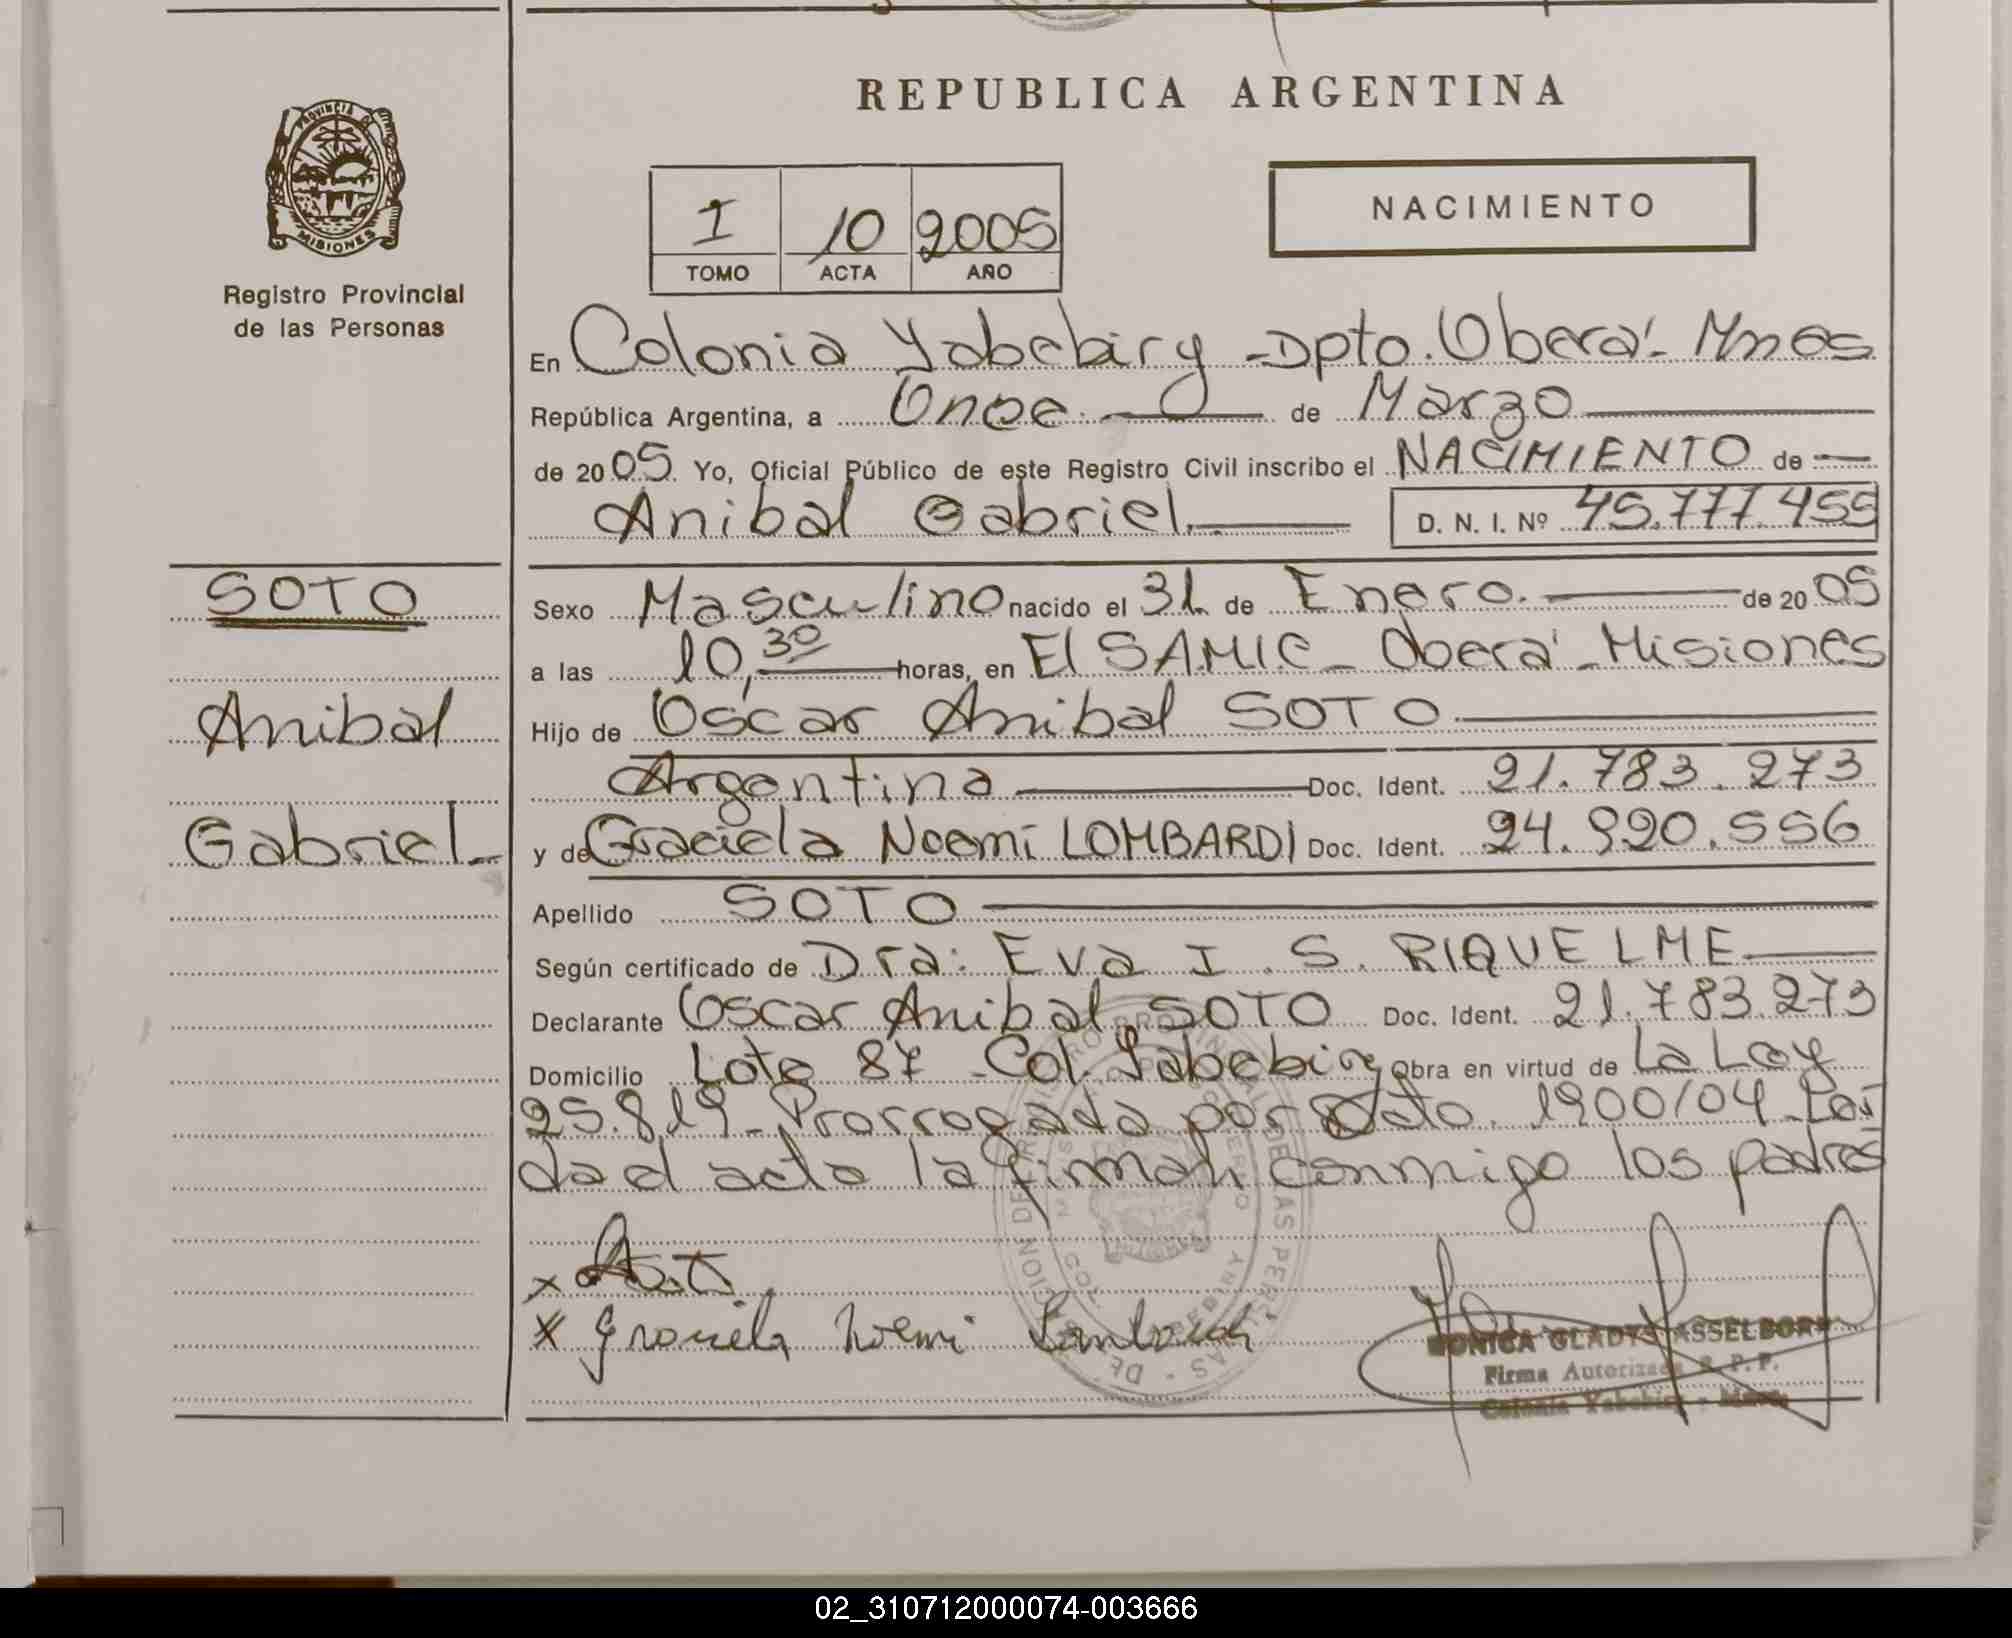 REPUBLICA ARGENTINA
PROVINCIA DE
MISIONES
Registro Provincial
de las Personas
I 10 2005
TOMO ACTA AÑO
NACIMIENTO
En Colonia Yabebiry - Dpto. Oberá - Mnes
República Argentina, a Once de Marzo
de 2005 Yo, Oficial Público de este Registro Civil inscribo el NACIMIENTO de
Anibal Gabriel. D. N. I. Nº 45.777.455
SOTO
Anibal
Gabriel
Sexo Masculino nacido el 31 de Enero. de 2005
a las 10,30 horas, en El SAMIC - Oberá - Misiones
Hijo de Oscar Anibal SOTO
Argentina Doc. Ident. 21.783.273
y de Graciela Noemi LOMBARDI Doc. Ident. 24.920.556
Apellido SOTO
Según certificado de Dra: Eva I. S. RIQUELME
Declarante Oscar Anibal SOTO Doc. Ident. 21.783.273
Domicilio Lote 87 - Col. Yabebiry Obra en virtud de La Ley
25.819 - Prorrogada por Dcto. 1900/04 - Leí
da el acta la firman conmigo los padres
x
x Graciela Noemi Lombardi
MONICA GLADYS ASSELBORN
Firma Autorizada R. P. P.
Colonia Yabebiry - Mnes.
02_310712000074-003666